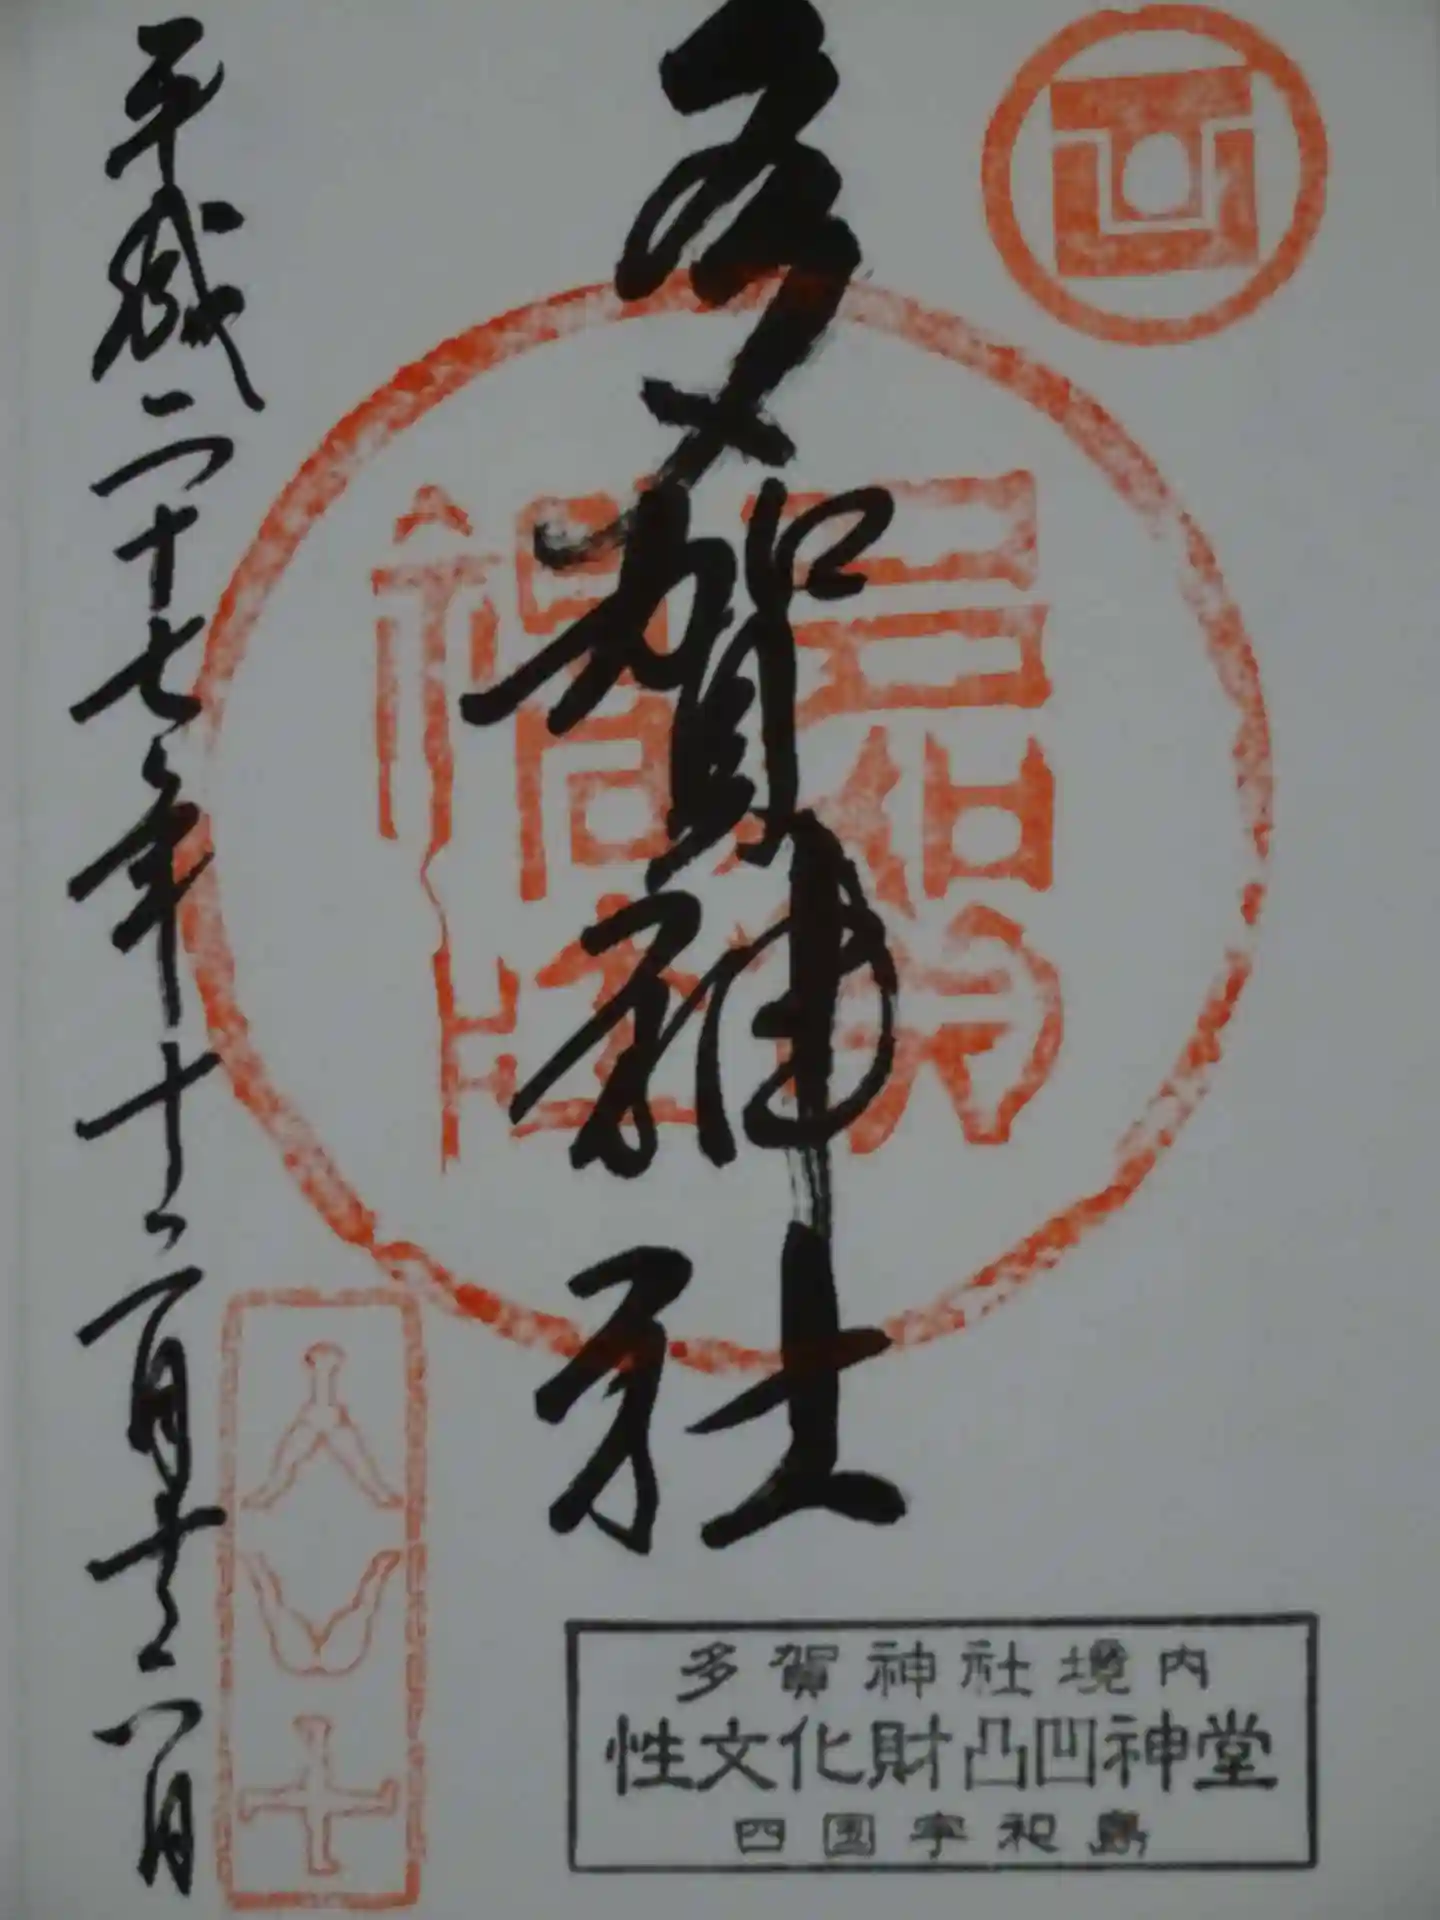 多賀神社
平成二十七年十二月
多賀神社境内
性文化財凸凹神堂
四国宇和島